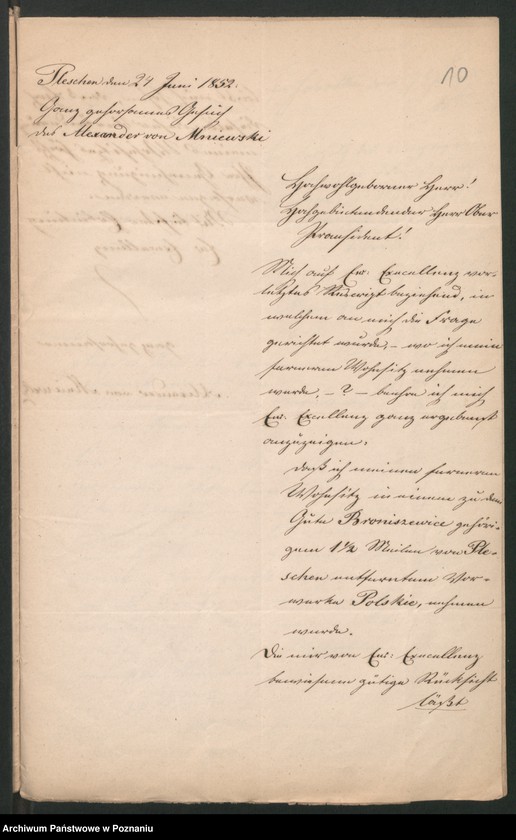 10
Pleschen den 24 Juni 1852.
Ganz gehorsames Gesuch
des Alexander von Mniewski
Hochwohlgeborner Herr!
Hochgebietendender Herr Ober
Praesident!
Mich auf Ew. Excellenz vor-
letztes Rescript beziehend, in
welchem an mich die Frage
gerichtet wurde – wo ich mein
ferneren Wohnsitz nehmen
werde. – ? – beehre ich mich
Ew. Excellenz ganz ergebenst
anzuzeigen,
daß ich meinen ferneren
Wohnsitz in einem zu dem
Gute Broniszewice gehöri-
gem 1½ Meilen von Ple-
schen entferntem Vor-
werke Polskie, nehmen
werde.
Die mir von Ew: Excellenz
bewiesene gütige Rücksicht
läßt
Archiwum Państwowe w Poznaniu